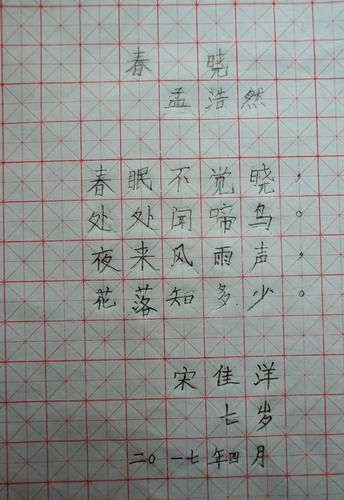 春晓
孟浩然
春眠不觉晓，
处处闻啼鸟。
夜来风雨声，
花落知多少。
宋佳洋
七岁
二〇一七年四月